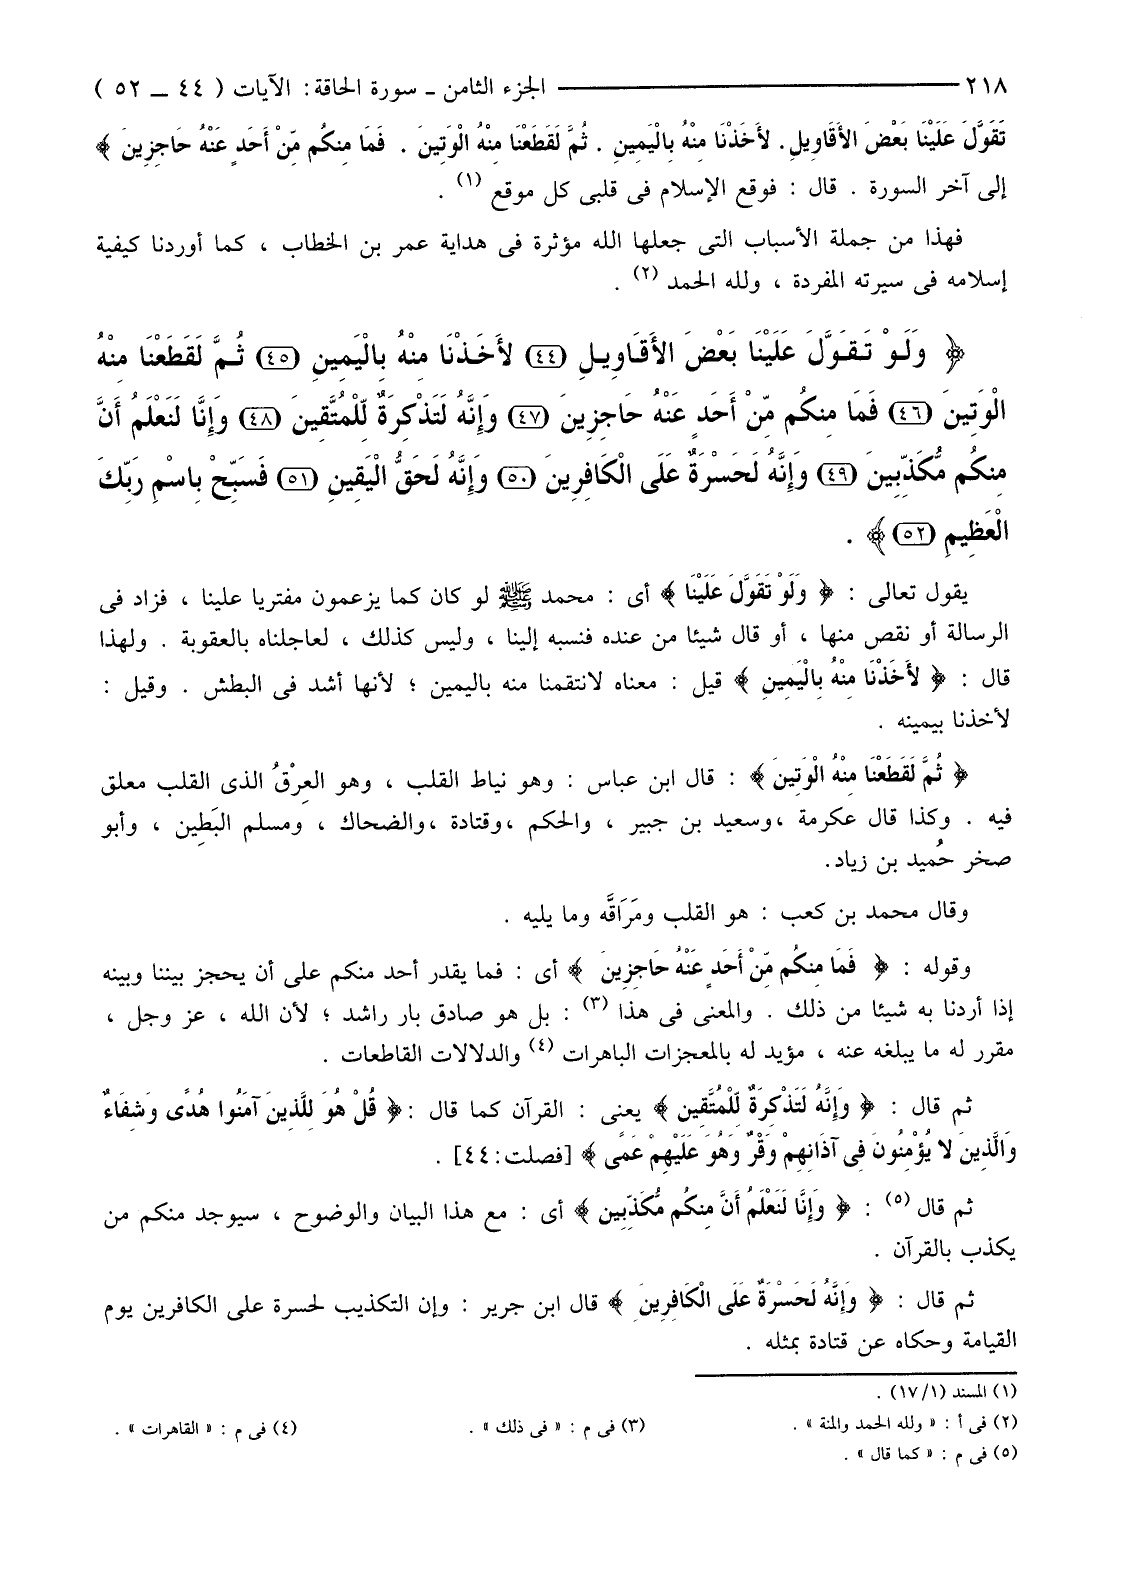 ٢١٨ ــــــ الجزء الثامن ـ سورة الحاقة: الآيات ( ٤٤ ــ ٥٢ )
تَقَوَّلَ عَلَيْنَا بَعْضَ الأَقَاوِيلِ. لأَخَذْنَا مِنْهُ بِالْيَمِينِ . ثُمَّ لَقَطَعْنَا مِنْهُ الْوَتِينَ . فَمَا مِنكُم مِّنْ أَحَدٍ عَنْهُ حَاجِزِينَ ﴾
إلى آخر السورة . قال : فوقع الإسلام فى قلبى كل موقع (١) .
فهذا من جملة الأسباب التى جعلها الله مؤثرة فى هداية عمر بن الخطاب ، كما أوردنا كيفية
إسلامه فى سيرته المفردة ، ولله الحمد (٢) .
﴿ وَلَوْ تَقَوَّلَ عَلَيْنَا بَعْضَ الأَقَاوِيلِ (٤٤) لأَخَذْنَا مِنْهُ بِالْيَمِينِ (٤٥) ثُمَّ لَقَطَعْنَا مِنْهُ
الْوَتِينَ (٤٦) فَمَا مِنكُم مِّنْ أَحَدٍ عَنْهُ حَاجِزِينَ (٤٧) وَإِنَّهُ لَتَذْكِرَةٌ لِّلْمُتَّقِينَ (٤٨) وَإِنَّا لَنَعْلَمُ أَنَّ
مِنكُم مُّكَذِّبِينَ (٤٩) وَإِنَّهُ لَحَسْرَةٌ عَلَى الْكَافِرِينَ (٥٠) وَإِنَّهُ لَحَقُّ الْيَقِينِ (٥١) فَسَبِّحْ بِاسْمِ رَبِّكَ
الْعَظِيمِ (٥٢) ﴾ .
يقول تعالى : ﴿ وَلَوْ تَقَوَّلَ عَلَيْنَا ﴾ أى : محمد ﷺ لو كان كما يزعمون مفتريا علينا ، فزاد فى
الرسالة أو نقص منها ، أو قال شيئا من عنده فنسبه إلينا ، وليس كذلك ، لعاجلناه بالعقوبة . ولهذا
قال : ﴿ لأَخَذْنَا مِنْهُ بِالْيَمِينِ ﴾ قيل : معناه لانتقمنا منه باليمين ؛ لأنها أشد فى البطش . وقيل :
لأخذنا بيمينه .
﴿ ثُمَّ لَقَطَعْنَا مِنْهُ الْوَتِينَ ﴾ : قال ابن عباس : وهو نياط القلب ، وهو العِرْقُ الذى القلب معلق
فيه . وكذا قال عكرمة ،وسعيد بن جبير ، والحكم ،وقتادة ،والضحاك ، ومسلم البَطِين ، وأبو
صخر حُميد بن زياد.
وقال محمد بن كعب : هو القلب ومَرَاقَّه وما يليه .
وقوله : ﴿ فَمَا مِنكُم مِّنْ أَحَدٍ عَنْهُ حَاجِزِينَ ﴾ أى : فما يقدر أحد منكم على أن يحجز بيننا وبينه
إذا أردنا به شيئا من ذلك . والمعنى فى هذا (٣) : بل هو صادق بار راشد ؛ لأن الله ، عز وجل ،
مقرر له ما يبلغه عنه ، مؤيد له بالمعجزات الباهرات (٤) والدلالات القاطعات .
ثم قال : ﴿ وَإِنَّهُ لَتَذْكِرَةٌ لِّلْمُتَّقِينَ ﴾ يعنى : القرآن كما قال :﴿ قُلْ هُوَ لِلَّذِينَ آمَنُوا هُدًى وَشِفَاءٌ
وَالَّذِينَ لا يُؤْمِنُونَ فِى آذَانِهِمْ وَقْرٌ وَهُوَ عَلَيْهِمْ عَمًى ﴾ [فصلت:٤٤] .
ثم قال (٥) : ﴿ وَإِنَّا لَنَعْلَمُ أَنَّ مِنكُم مُّكَذِّبِين ﴾ أى : مع هذا البيان والوضوح ، سيوجد منكم من
يكذب بالقرآن .
ثم قال : ﴿ وَإِنَّهُ لَحَسْرَةٌ عَلَى الْكَافِرِينَ ﴾ قال ابن جرير : وإن التكذيب لحسرة على الكافرين يوم
القيامة وحكاه عن قتادة بمثله .
(١) المسند (١/ ١٧) .
(٢) فى أ : « ولله الحمد والمنة » . (٣) فى م : « فى ذلك » . (٤) فى م : « القاهرات » .
(٥) فى م : « كما قال » .